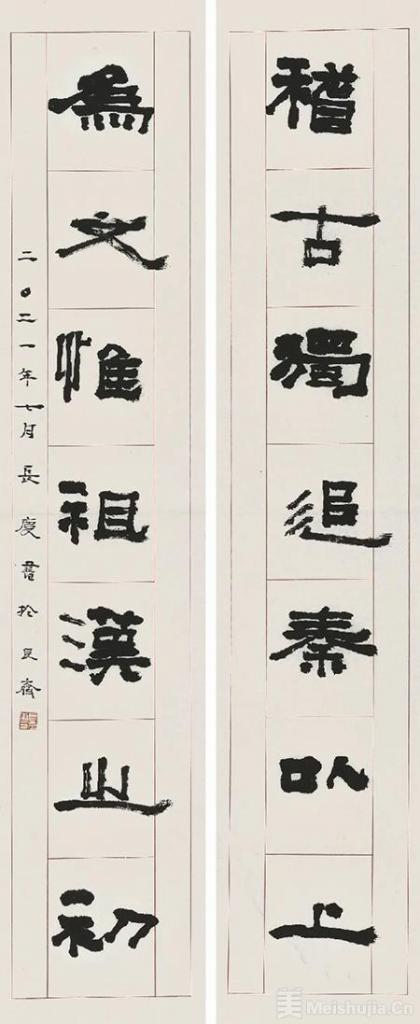 稽古獨追秦㠯上
為文惟祖漢之初
二〇二一年七月長慶書於艮齋
美 Meishujia.Cn